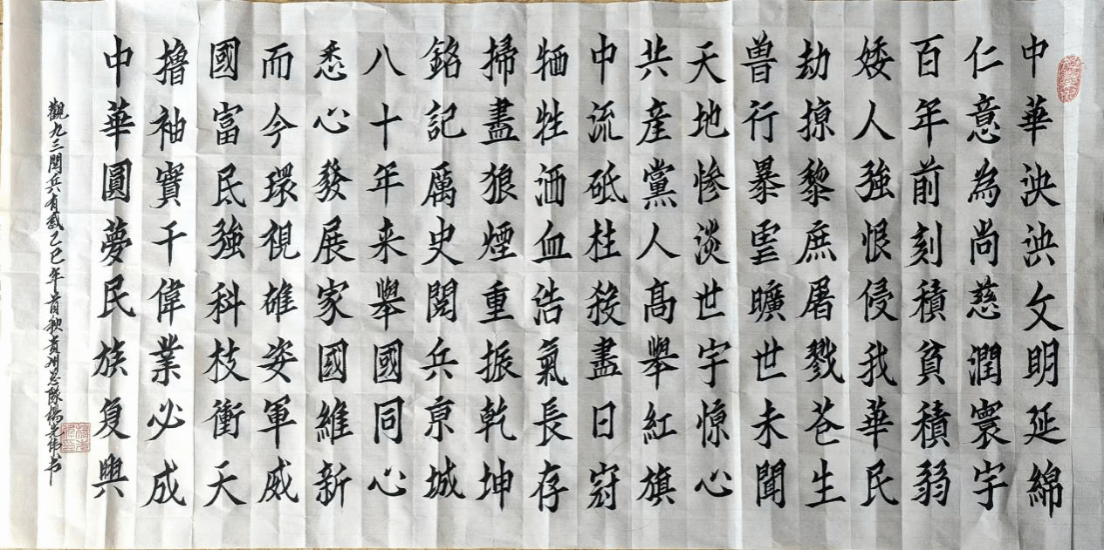 中華泱泱文明延綿
仁意為尚慈潤寰宇
百年前刻積貧積弱
矮人強恨侵我華民
劫掠黎庶屠戮苍生
兽行暴虐曠世未聞
天地惨淡世宇惊心
共產黨人高舉紅旗
中流砥柱殺盡日寇
牺牲洒血浩氣長存
掃盡狼煙重振乾坤
銘記厲史閱兵京城
八十年来舉國同心
悉心發展家國維新
而今環視雄姿軍威
國富民強科枝衝天
擼袖實干偉業必成
中華圓夢民族复興
觀九三閱兵有感乙巳年首秋貴州总隊楊光伟书